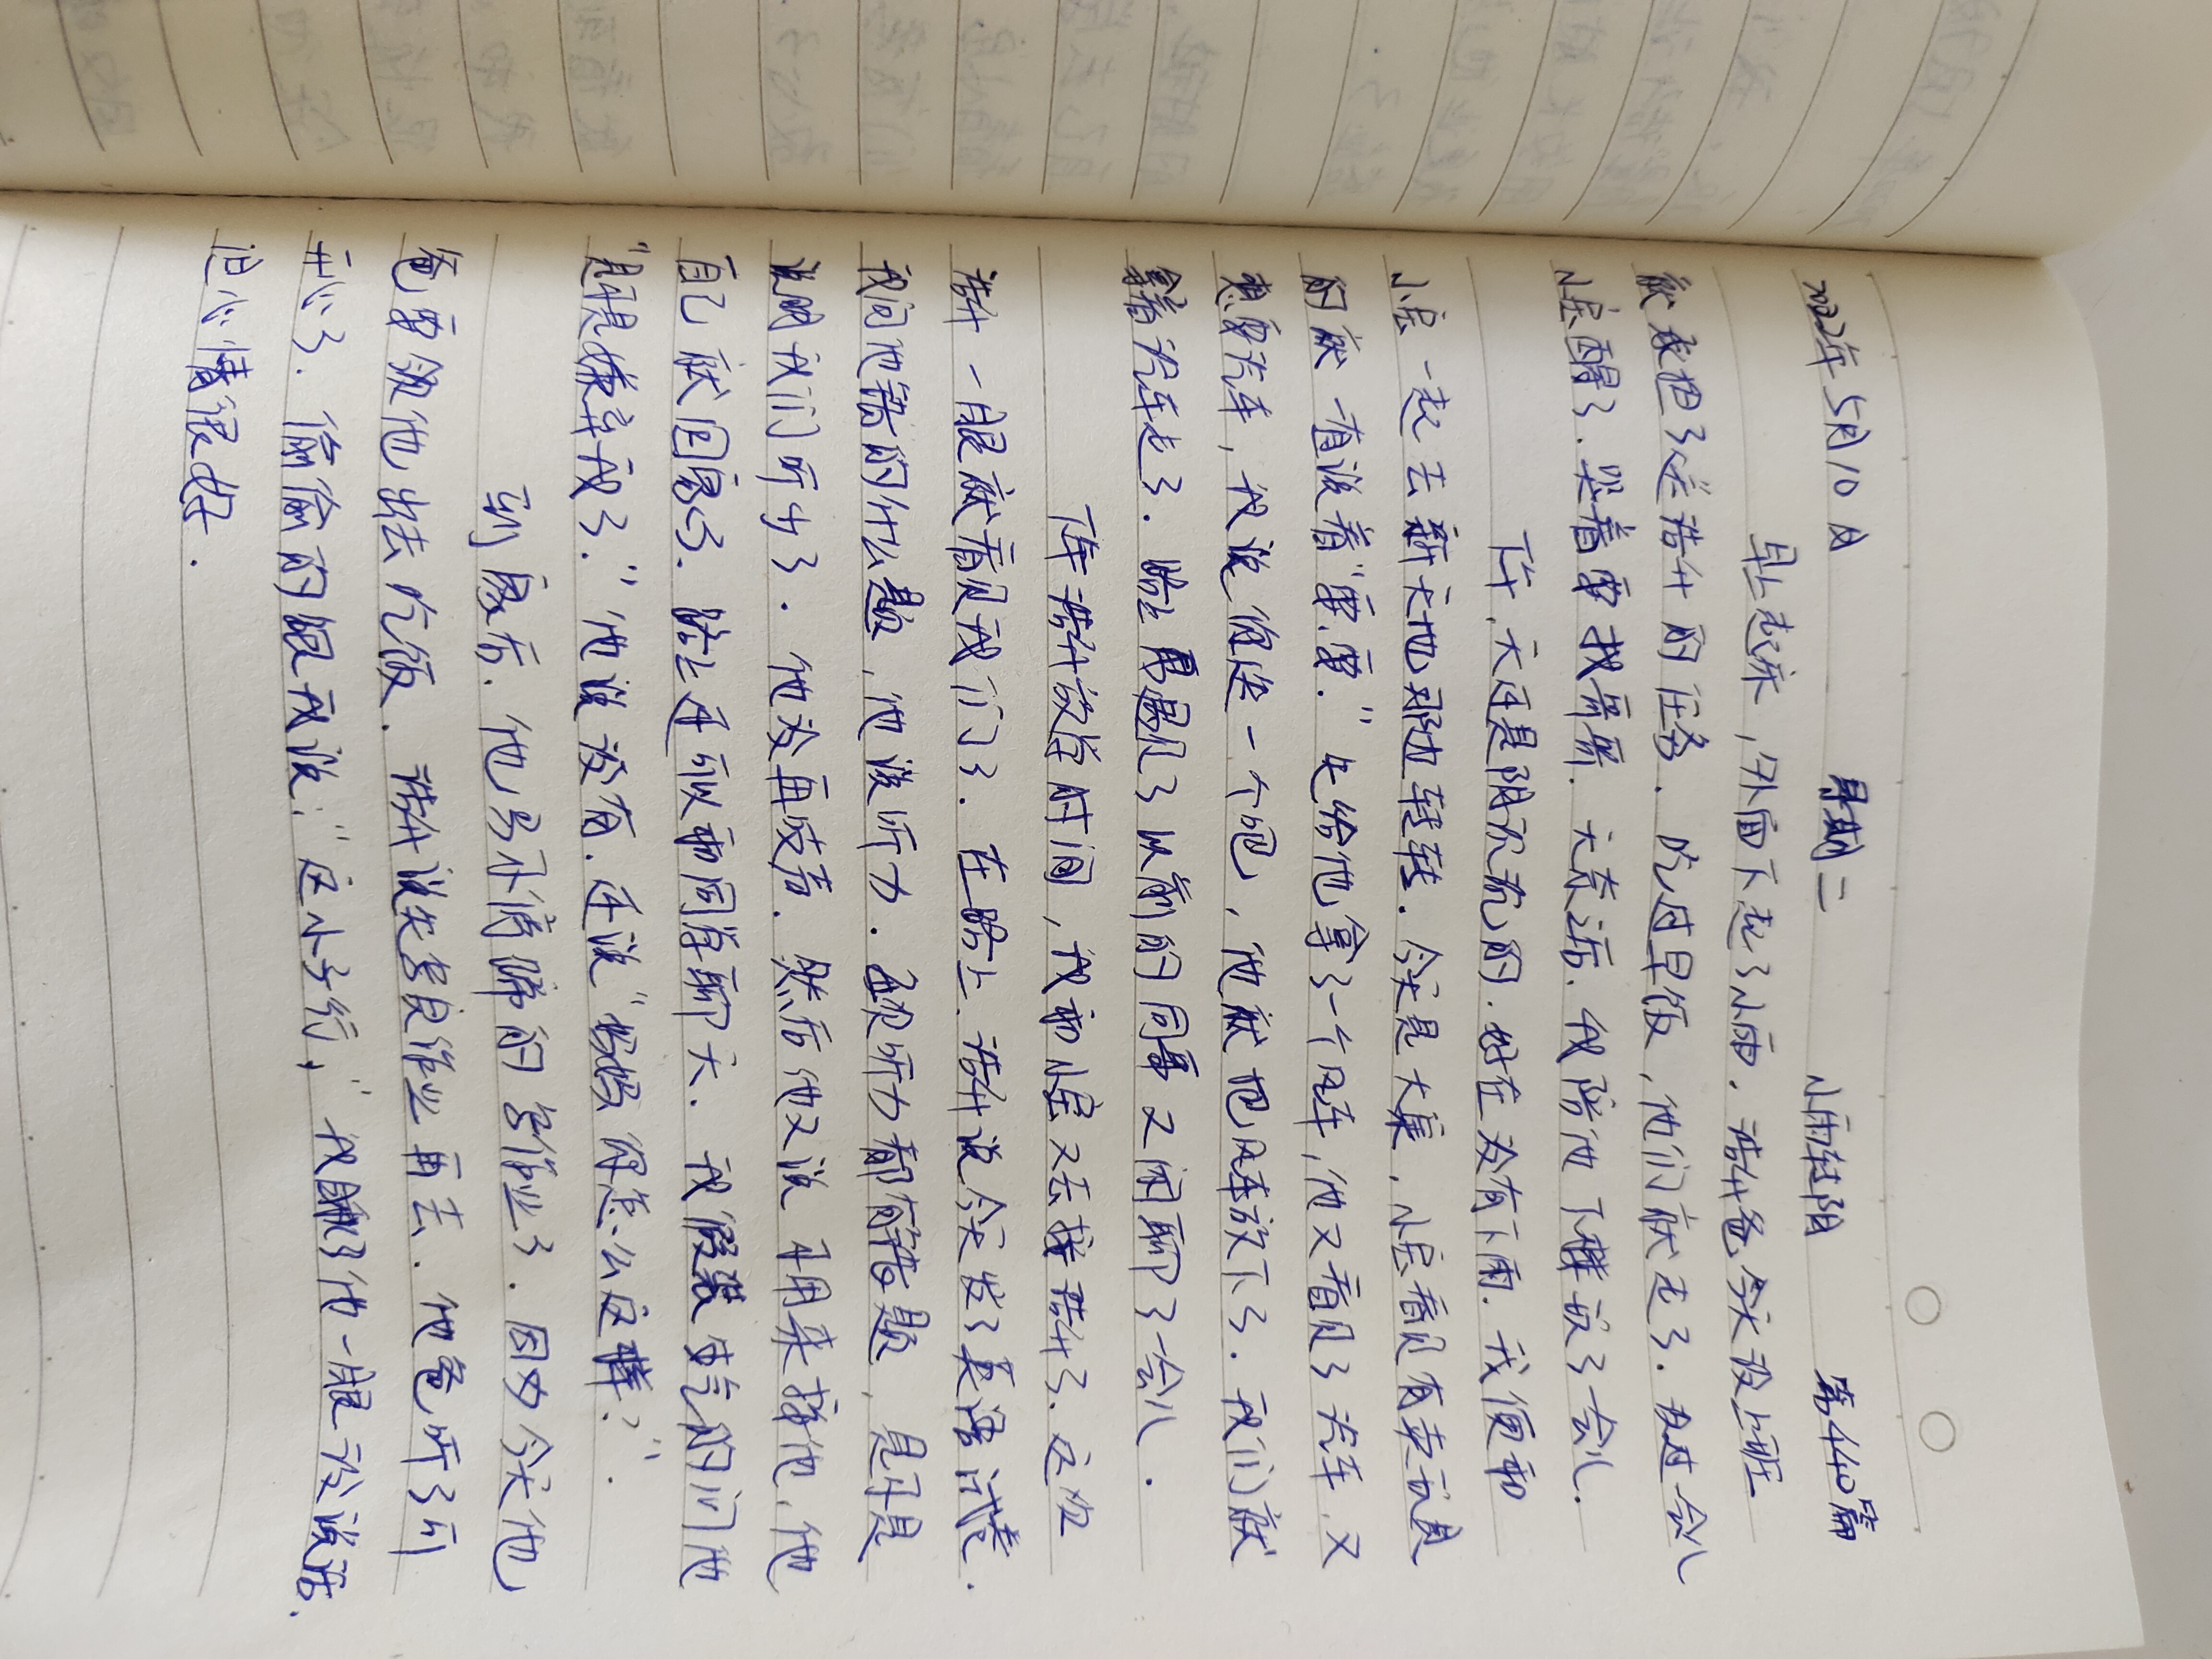 2022年5月10日 星期二 小雨转阴 第440篇
早上起床，外面下起了小雨．浩什爸今天没上班
就我把了送浩什的任务．吃过早饭，他们就走了．没过一会儿
小宝醒了．哭着要找哥哥．大奇迹．我陪他下楼放了会儿．
下午，天还是阴沉沉的．好在没有下雨．我便和
小宝一起去新天地那边转转．今天是大集，小宝看见有卖玩具
的就一直说着“要，要．”先给他拿了一个风车，他又看见了汽车，又
想要汽车，我说你选一个吧，他就把风车放下了．我们就
拿着汽车走了．路上遇见了以前的同事又闲聊了一会儿．
下午浩什放学时间，我和小宝又去接浩什了．这次
浩什一眼就看见我们了．在路上，浩什说今天发了英语试卷．
我问他错的什么题，他说听力．每次听力都有错题，是不是
说明我们听少了．他没再吱声．然后他又说不用来接他，他
自己就回家了．路上还可以和同学聊天．我假装生气的问他
“是不是嫌弃我了．”他说没有．还说“妈妈你怎么这样？”．
到家后．他乐不滋滋的写作业了．因为今天他
爸要领他出去吃饭．浩什说先写完作业再去．他爸听了可
开心了．偷偷的跟我说：“这小子行，”我瞅了他一眼没说话．
但心情很好．